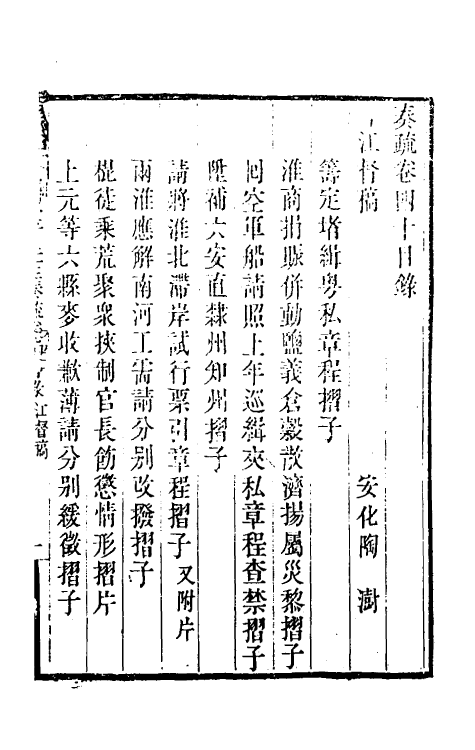 奏疏卷四十目錄
江督稿　安化陶　澍
籌定堵緝粵私章程摺子
淮商捐賑併動鹽義倉穀散濟揚屬災黎摺子
回空軍船請照上年巡緝夾私章程查禁摺子
陞補六安直隸州知州摺子
請將淮北滯岸試行票引章程摺子　又附片
兩淮應解南河工需請分別改撥摺子
棍徒乘荒聚衆挾制官長飭懲情形摺片
上元等六縣麥收歉薄請分別緩徵摺子
江督稿　一